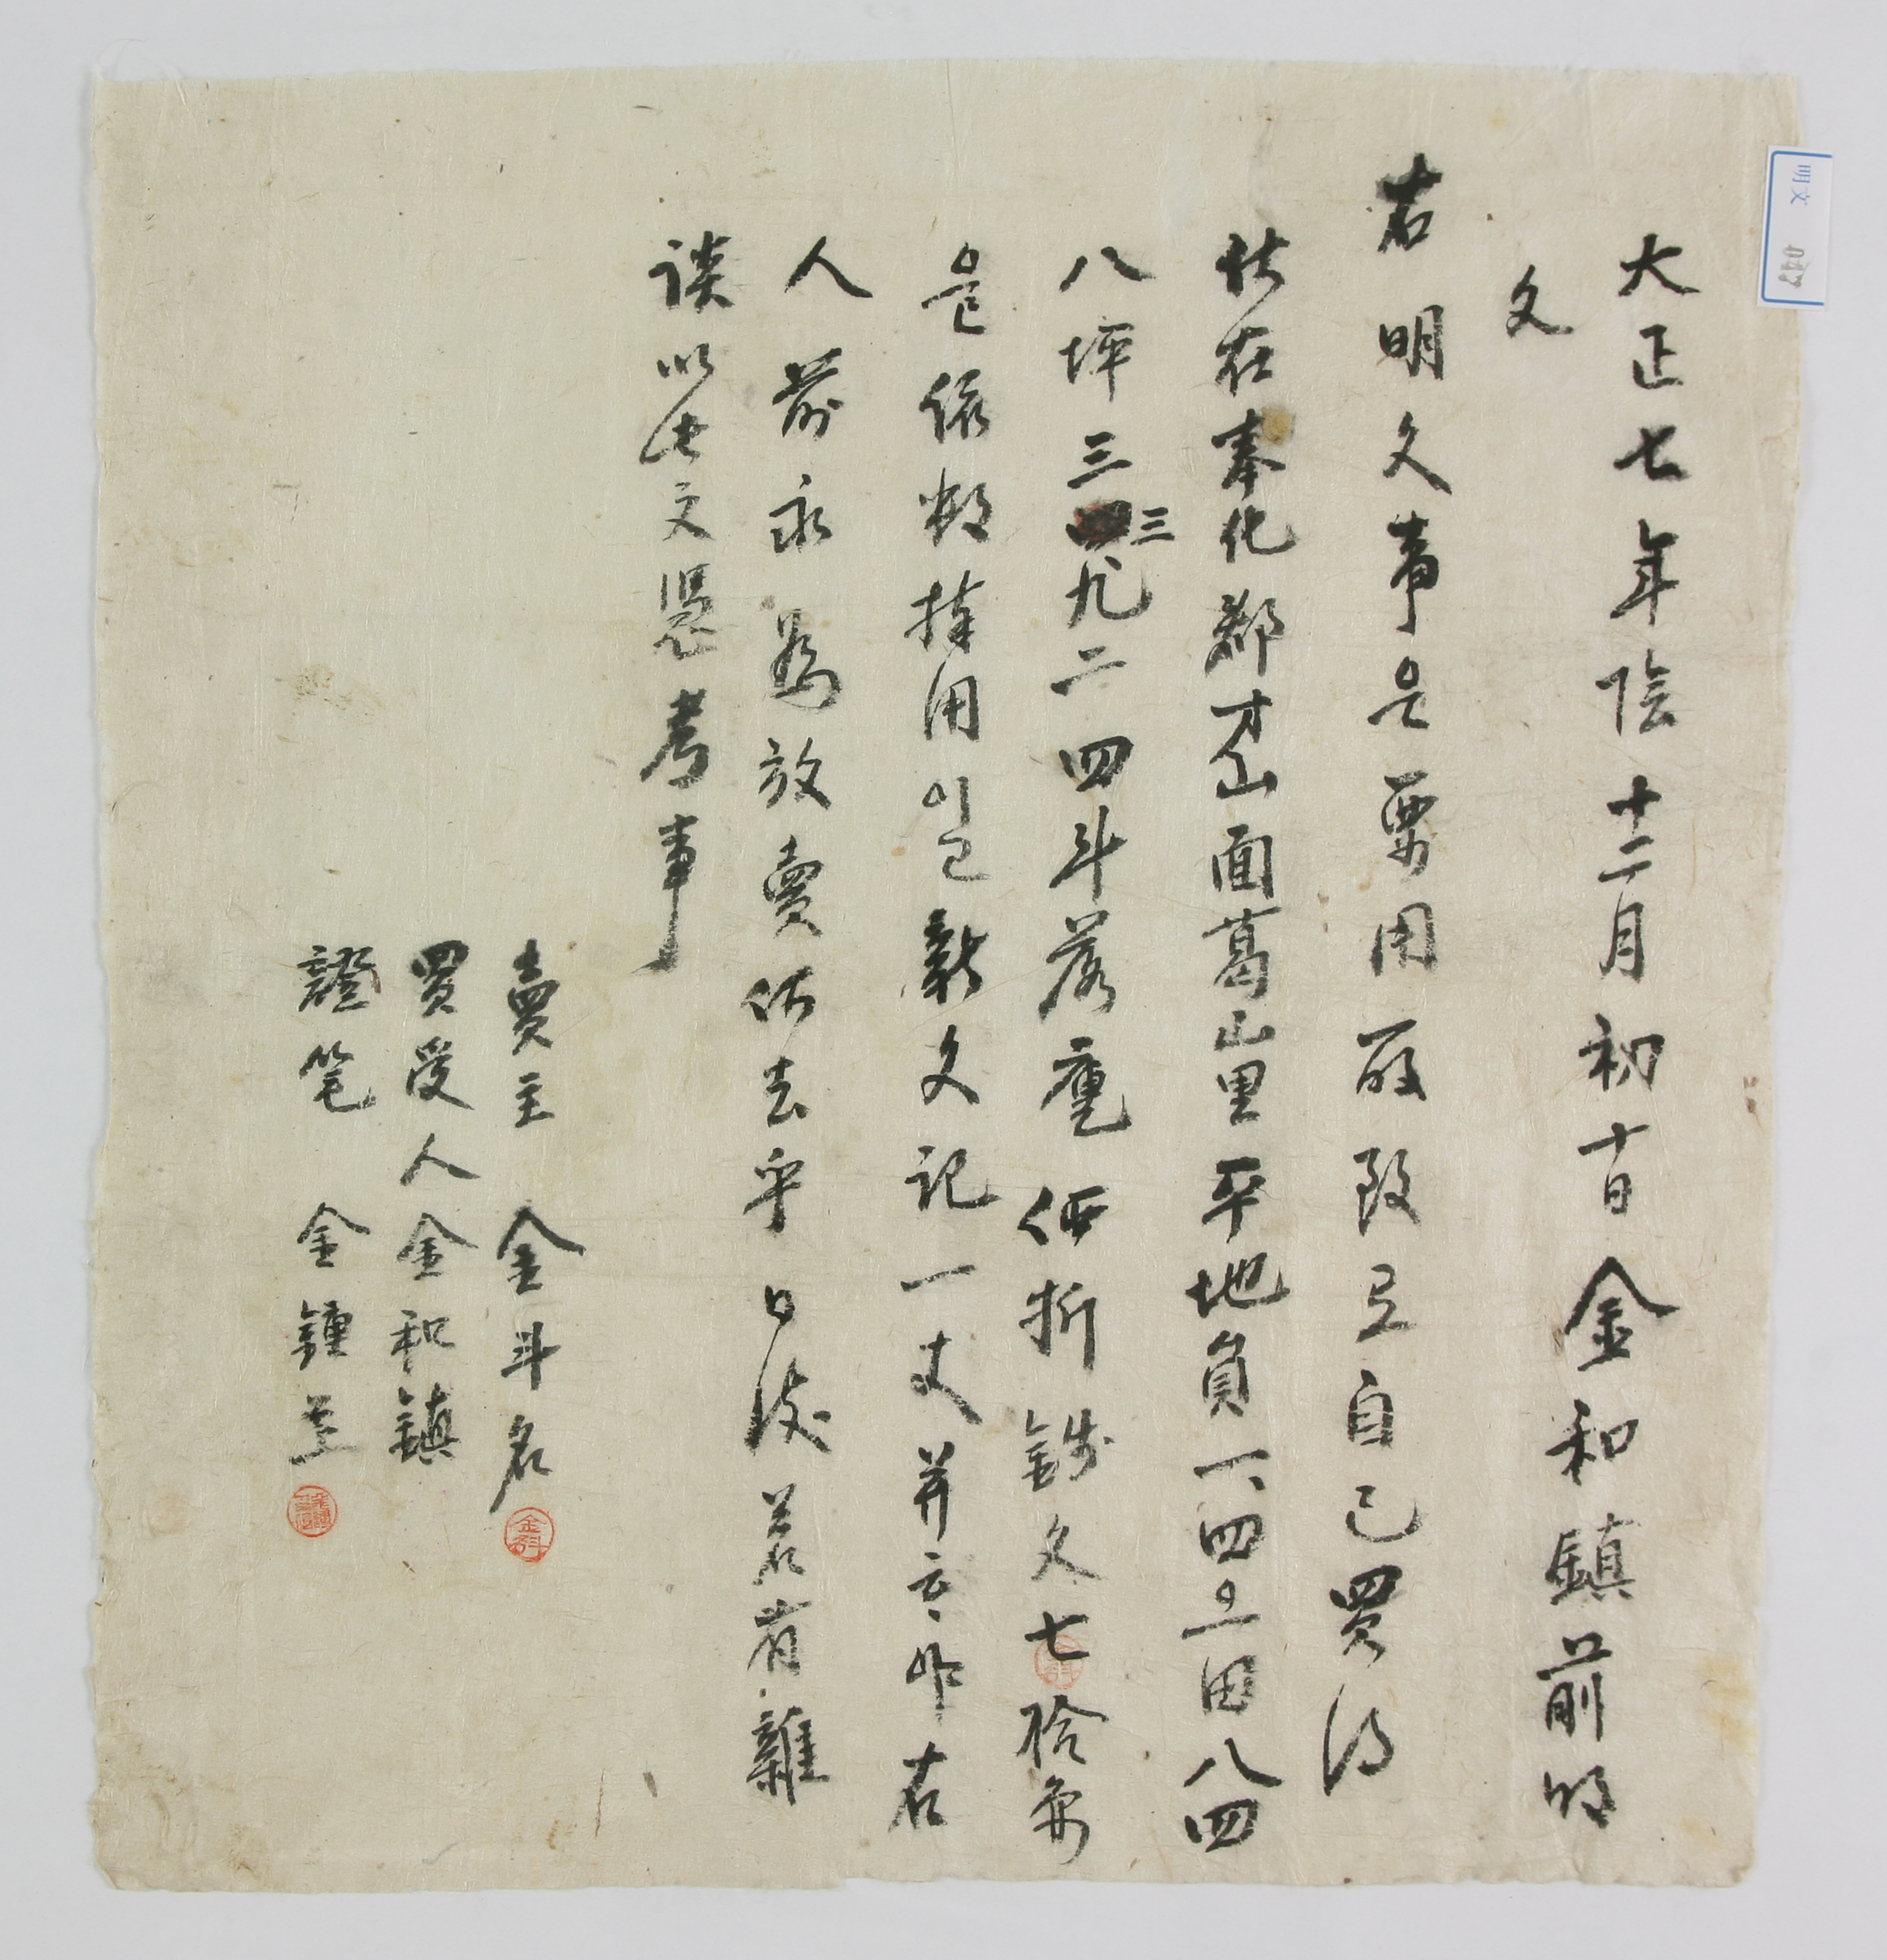 明文 047
大正七年陰十二月初十日金和鎭前明
文
右明文事은要用所致로自己買得
伏在奉化郡才山面葛山里平地員一、四오田八四
八坪三三九二四斗落庫価折錢文七拾兩
을依數捧用일고新文記一丈幷 右
人前永爲放賣 去乎日後若有雜
談以此文憑考事
賣主 金斗名
買受人金和鎭
證笔 金鍾